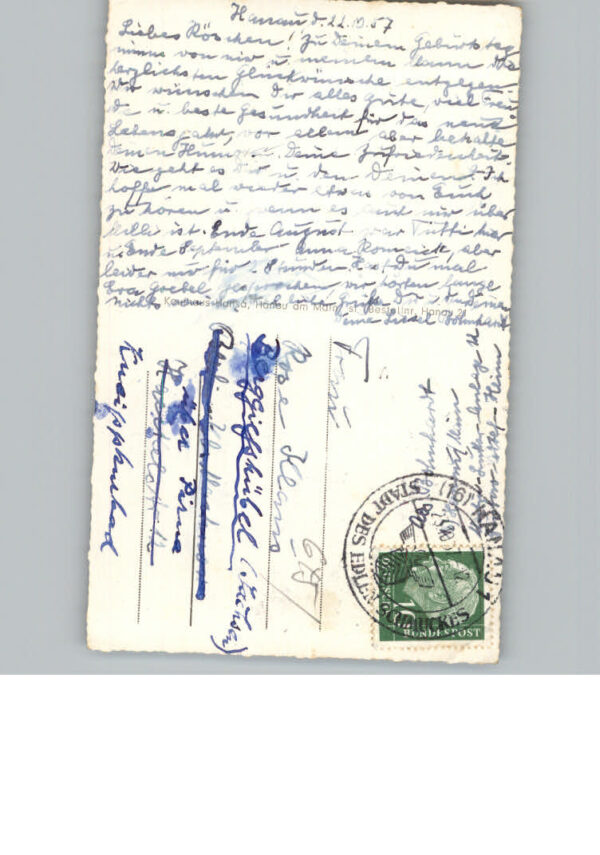 Hanau d. 22.10.57
Liebes Röschen! Zu Deinem Geburtstag
nimm von mir u. meinem Mann die
herzlichsten Glückwünsche entgegen.
Wir wünschen Dir alles gute, viel Freu-
de u. beste Gesundheit für das neue
Lebensjahr, vor allem aber behalte
Deinen Humor u. Deine Zufriedenheit.
Wie geht es Dir u. den Deinen? Ich
hoffe mal wieder etwas von Euch
zu hören u. wenn es auch nur über
ist. Ende August war Tutti hier
u. Ende September Anna, aber
leider nur für Stunden. Hast Du mal
Eva Goebel gesprochen, wir hörten lange
nichts. Grüße Dir u.
Deine Liesel Bohnhardt
Kaufhaus Hansa, Hanau am Main Bestellnr. Hanau 21
Frau
Rose
Berggießhübel (Sachsen)
über Pirna
Kneippbad
Bohnhardt
HANAU 1
STADT DES EDLEN SCHMUCKES
7
BUNDESPOST